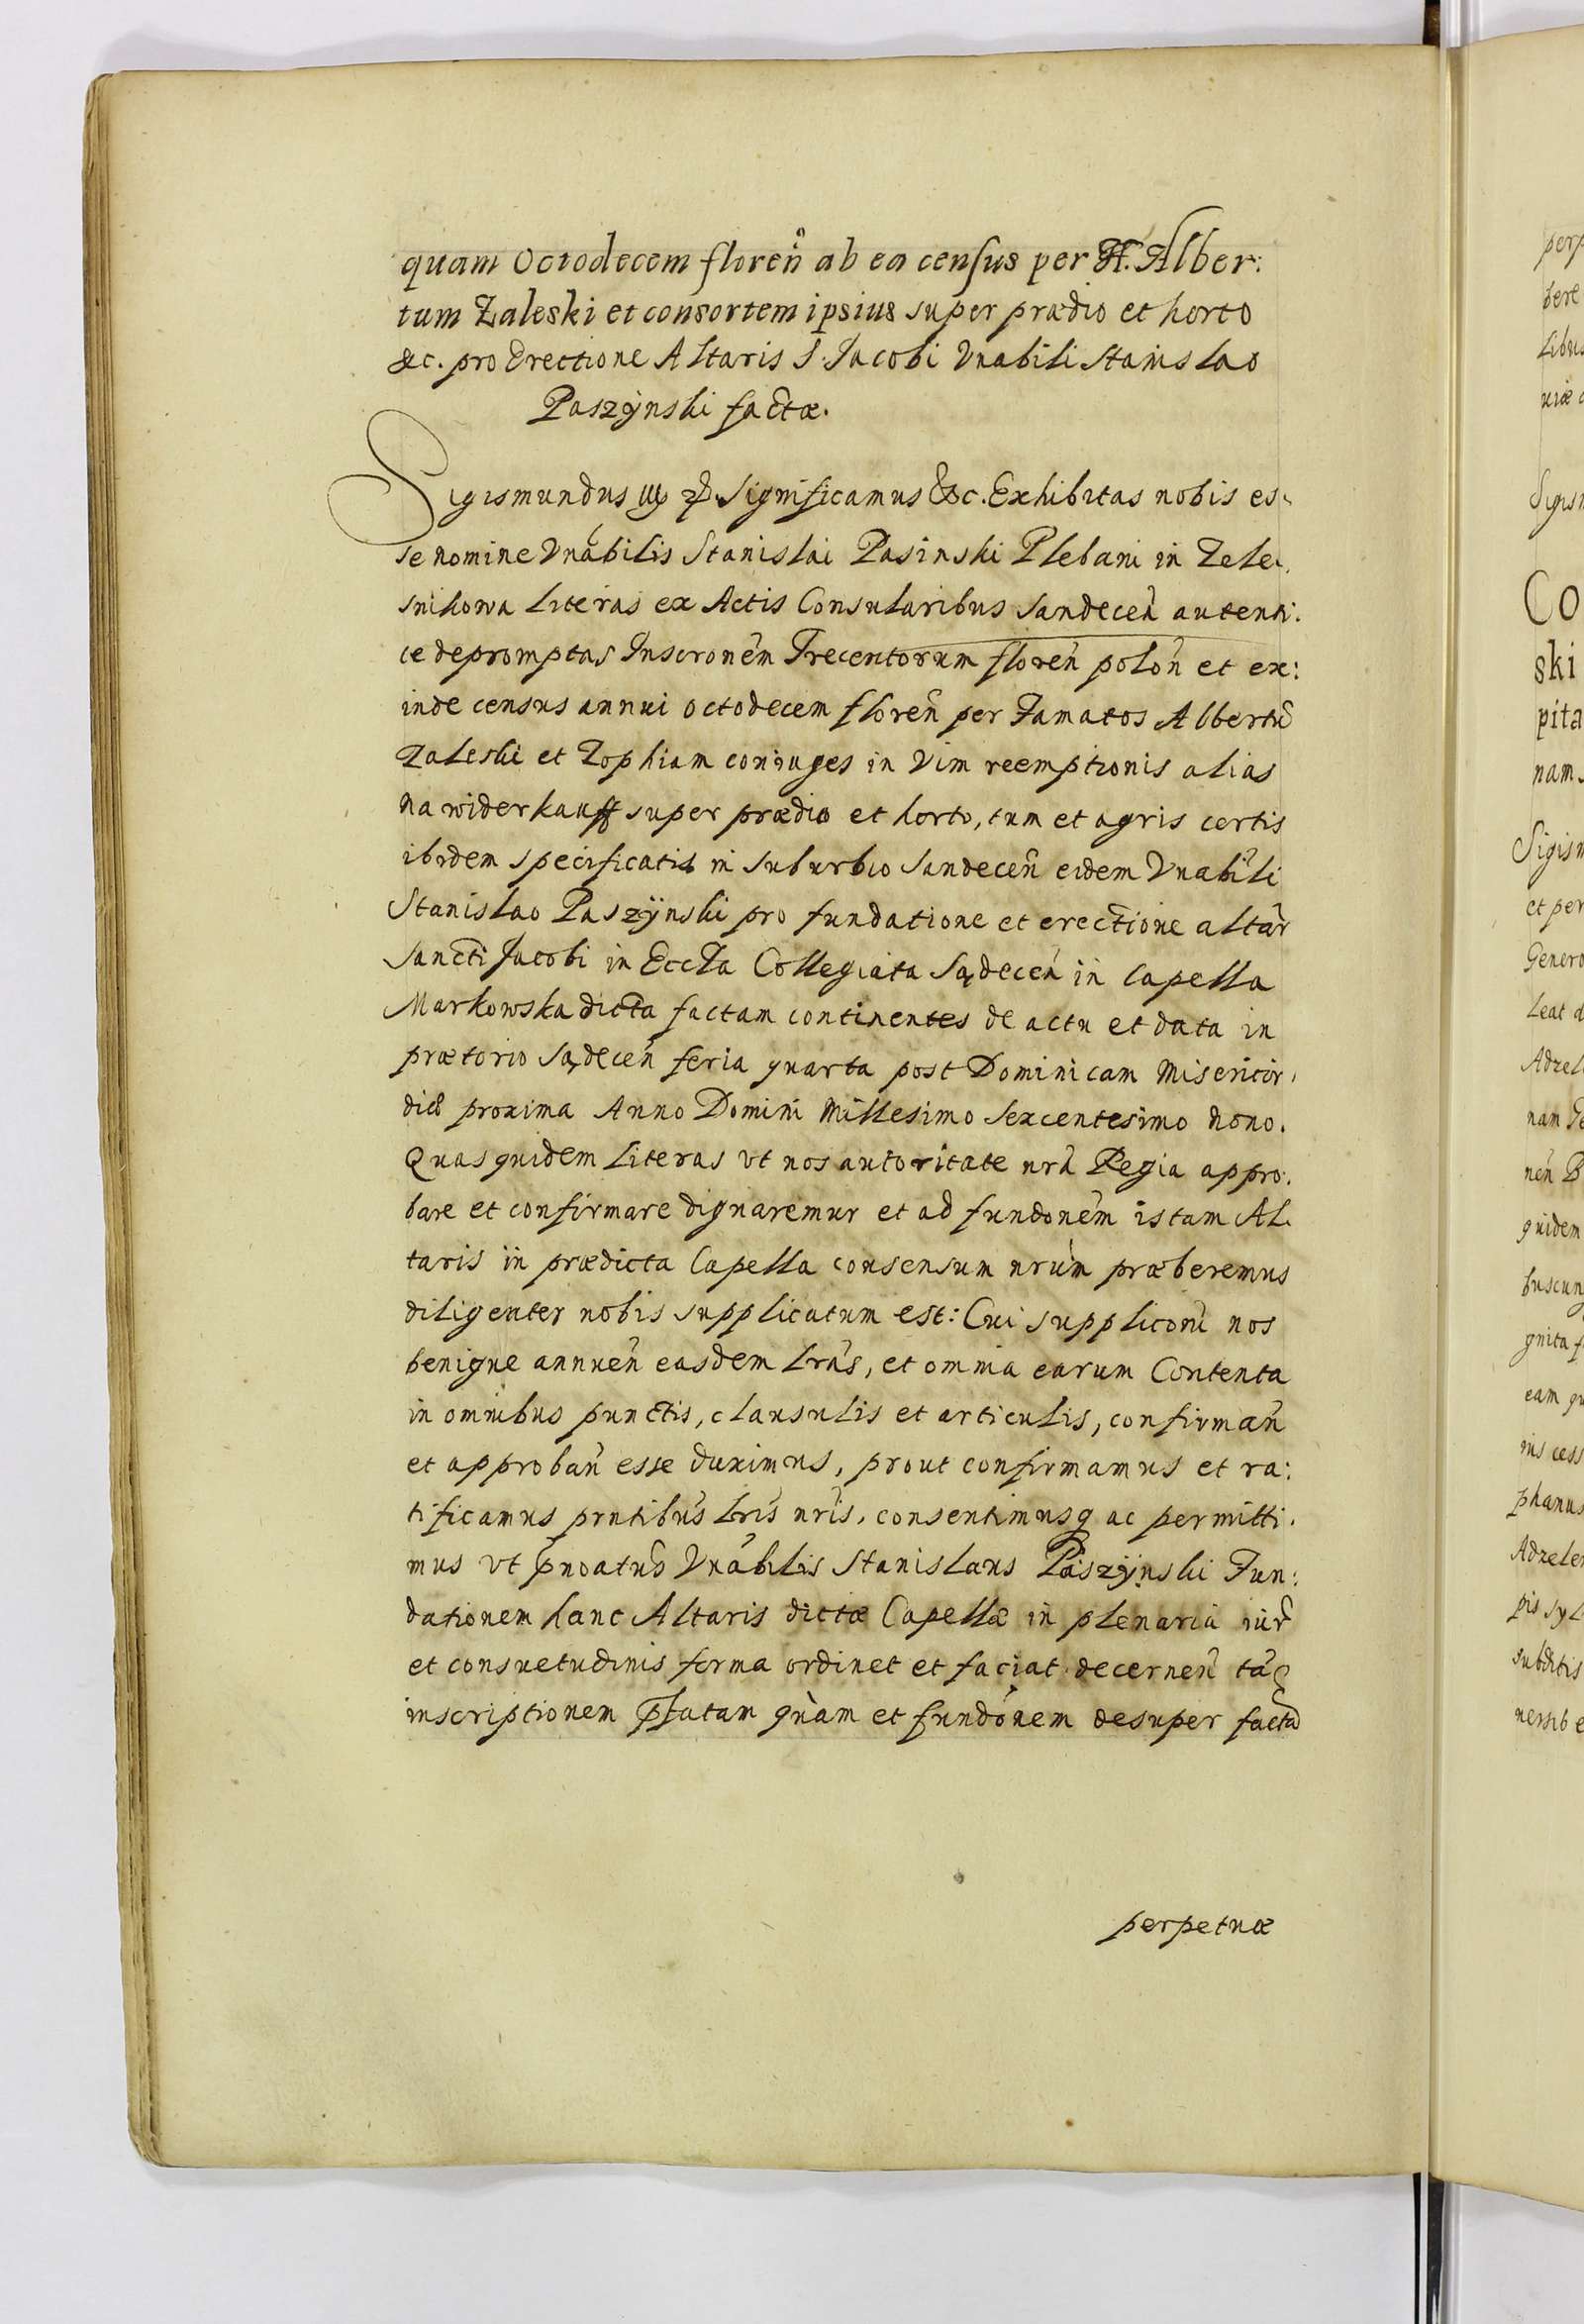 quam Octodecem floreñ ab ea census per H. Alber:
tum Zaleski et consortem ipsius super prædio et horto
&c. pro Erectione Altaris S. Jacobi Vnabili Stanislao
Paszÿnski factæ.
Sigismundus Significamus &c. Exhibitas nobis es-
se nomine Vnabilis Stanislai Pasinski Plebani in Zele-
snikowa Literas ex Actis Consularibus Sandeceñ autenti:
ce depromptas Inscronem Trecentorum floreñ poloñ et ex:
inde census annui octodecem floreñ per Famatos Albertũ
Zaleski et Zophiam coniuges in Vim reemptionis alias
na widerkauff super prædio et horto, tum et agris certis
ibidem specificatis in suburbio Sandeceñ eidem Vnabili
Stanislao Paszÿnski pro fundatione et erectione altar
Sancti Jacobi in Eccla Collegiata Sądeceñ in Capella
Markowska dicta factam continentes de actu et data in
prætorio Sądeceñ feria quarta post Dominicam Misericor-
diæ proxima Anno Domini Millesimo Sexcentesimo Nono.
Quas quidem Literas vt nos autoritate nra Regia appro-
bare et confirmare dignaremur et ad fundonem istam Al-
taris in prædicta Capella consensum nrum præberemus
diligenter nobis supplicatum est: Cui supplicõni nos
benigne annueñ easdem Lras, et omnia earum Contenta
in omnibus punctis, clausulis et articulis, confirmañ
et approbañ esse duximus, prout confirmamus et ra:
tificamus prntibus Lris nris, consentimusq ac permitti-
mus vt pnoatus Vnabilis Stanislaus Paszÿnski Fun:
dationem hanc Altaris dictæ Capellæ in plenaria iur
et consuetudinis forma ordinet et faciat decerneñ tã
inscriptionem pfatam quàm et fundonem desuper factã
perpetuæ
perp
bere
Libus
uiæ
Sigism
Co
ski
pita
nam
Sigism
et per
Genero
Leat d
Adzel
nam
neñ B
quidem
buscun
gnita f
eam qu
nis cess
phanus
Adzele
pis syl
subditis